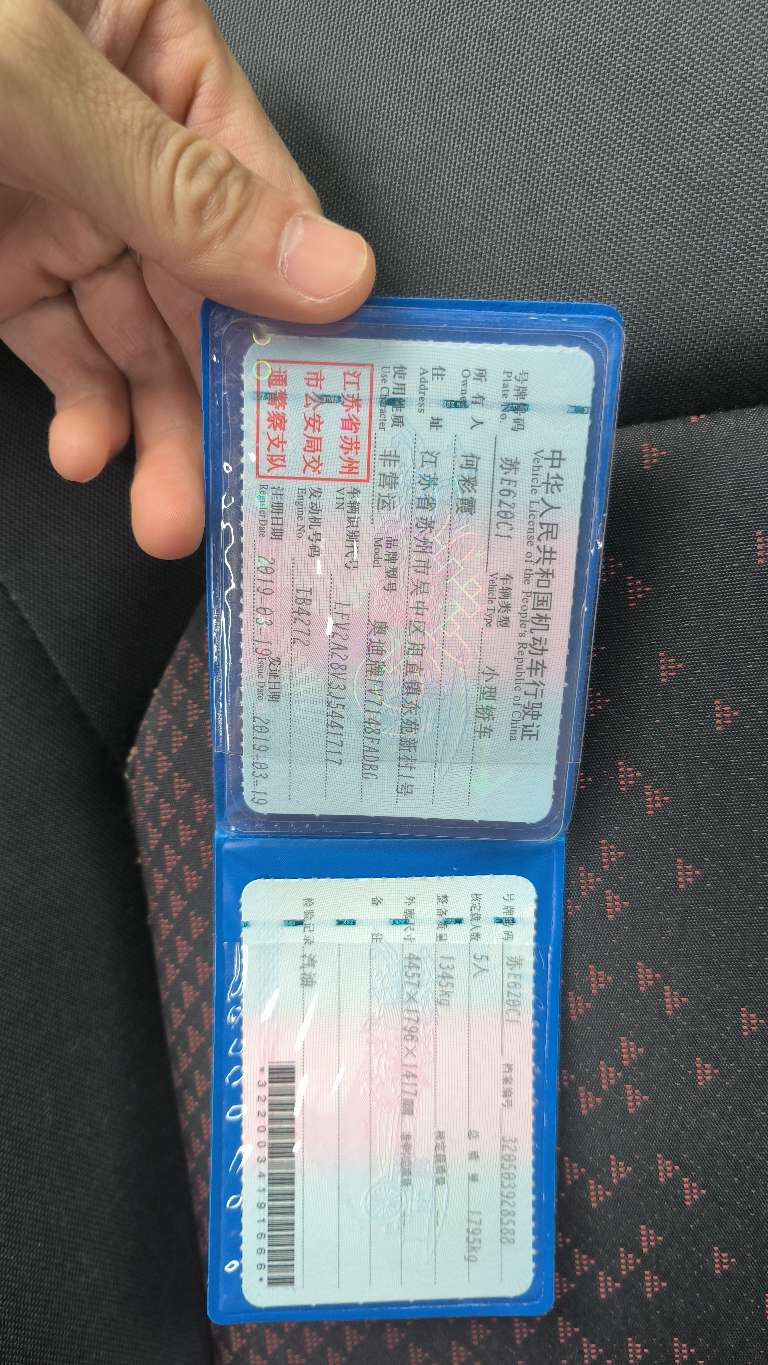 中华人民共和国机动车行驶证
Vehicle License of the People's Republic of China
号牌号码 苏E620C1 车辆类型 小型轿车
Plate No. Vehicle Type
所有人 何彩霞
Owner
住址 江苏省苏州市吴中区甪直镇东苑新村1号
Address
使用性质 非营运 品牌型号 奥迪牌FV7148FADBG
Use Character Model
江苏省苏州
市公安局交
通警察支队
车辆识别代号 LFV2A28V3J5441717
VIN
发动机号码 IB4272
Engine No.
注册日期 2019-03-19 发证日期 2019-03-19
Register Date Issue Date
号牌号码 苏E620C1 档案编号 320503928588
核定载人数 5人 总质量 1795kg
整备质量 1345kg 核定载质量
外廓尺寸 4457×1796×1417mm 准牵引总质量
备注
检验记录 汽油
*3220034191666*